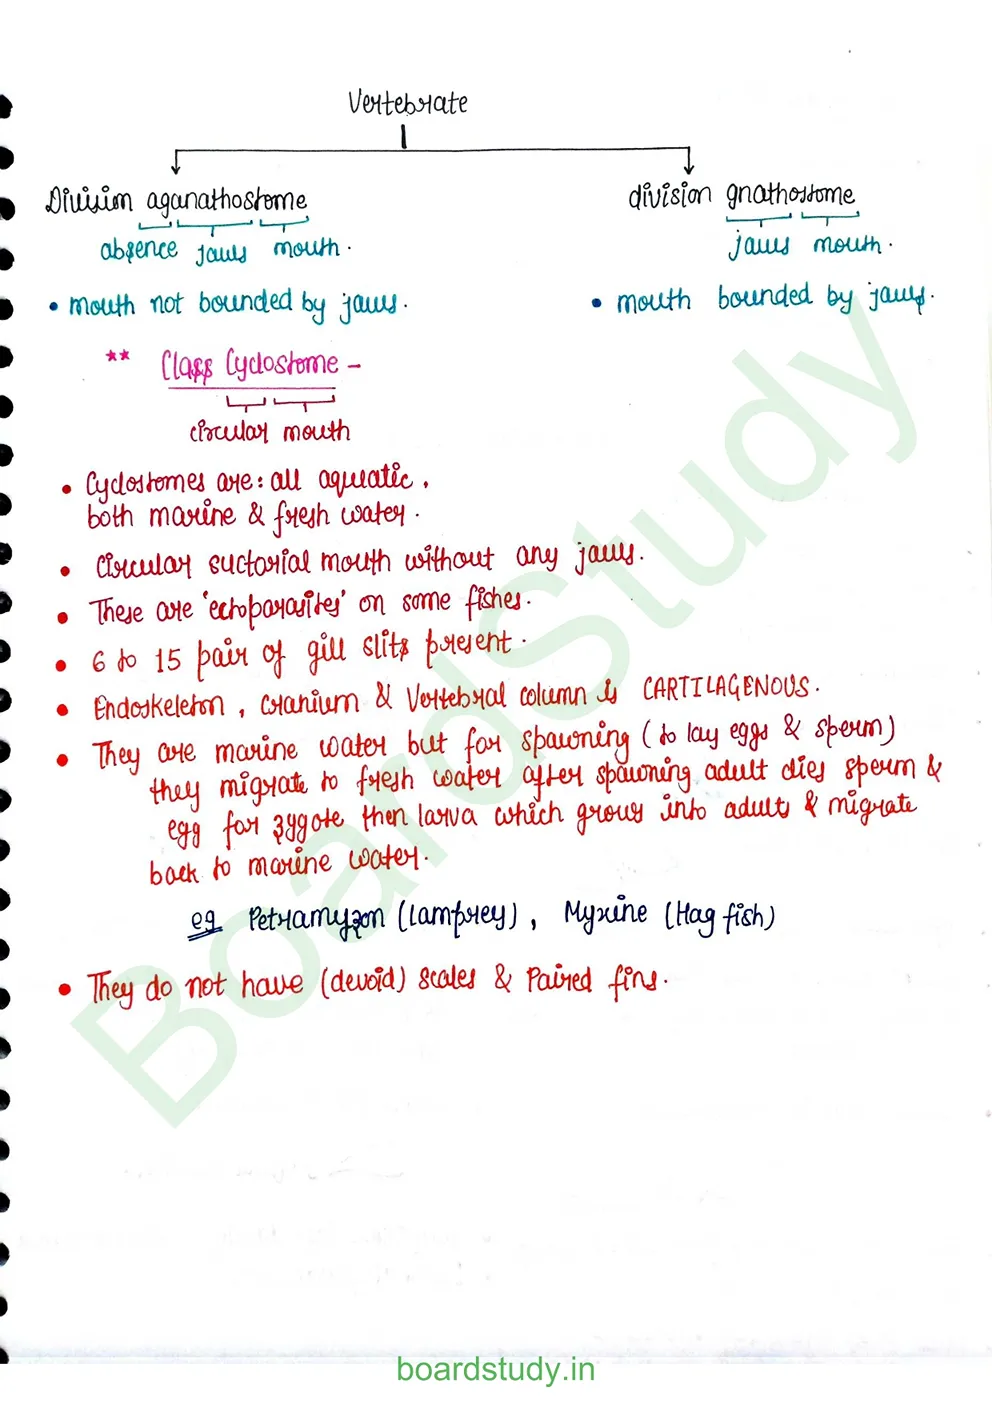 Vertebrate
Division aganathostome
division gnathostome
absence jaws mouth.
jaws mouth.
• mouth not bounded by jaws.
• mouth bounded by jaws.
** Class Cyclostome -
circular mouth
• Cyclostomes are: all aquatic,
both marine & fresh water.
• Circular suctorial mouth without any jaws.
• These are 'ectoparasites' on some fishes.
• 6 to 15 pair of gill slits present.
• Endoskeleton, cranium & Vertebral column is CARTILAGENOUS.
• They are marine water but for spawning (to lay eggs & sperm)
they migrate to fresh water after spawning adult dies sperm &
egg for zygote then larva which grows into adult & migrate
back to marine water.
eg Petramyzon (Lamprey), Myxine (Hag fish)
• They do not have (devoid) scales & Paired fins.
BoardStudy
boardstudy.in